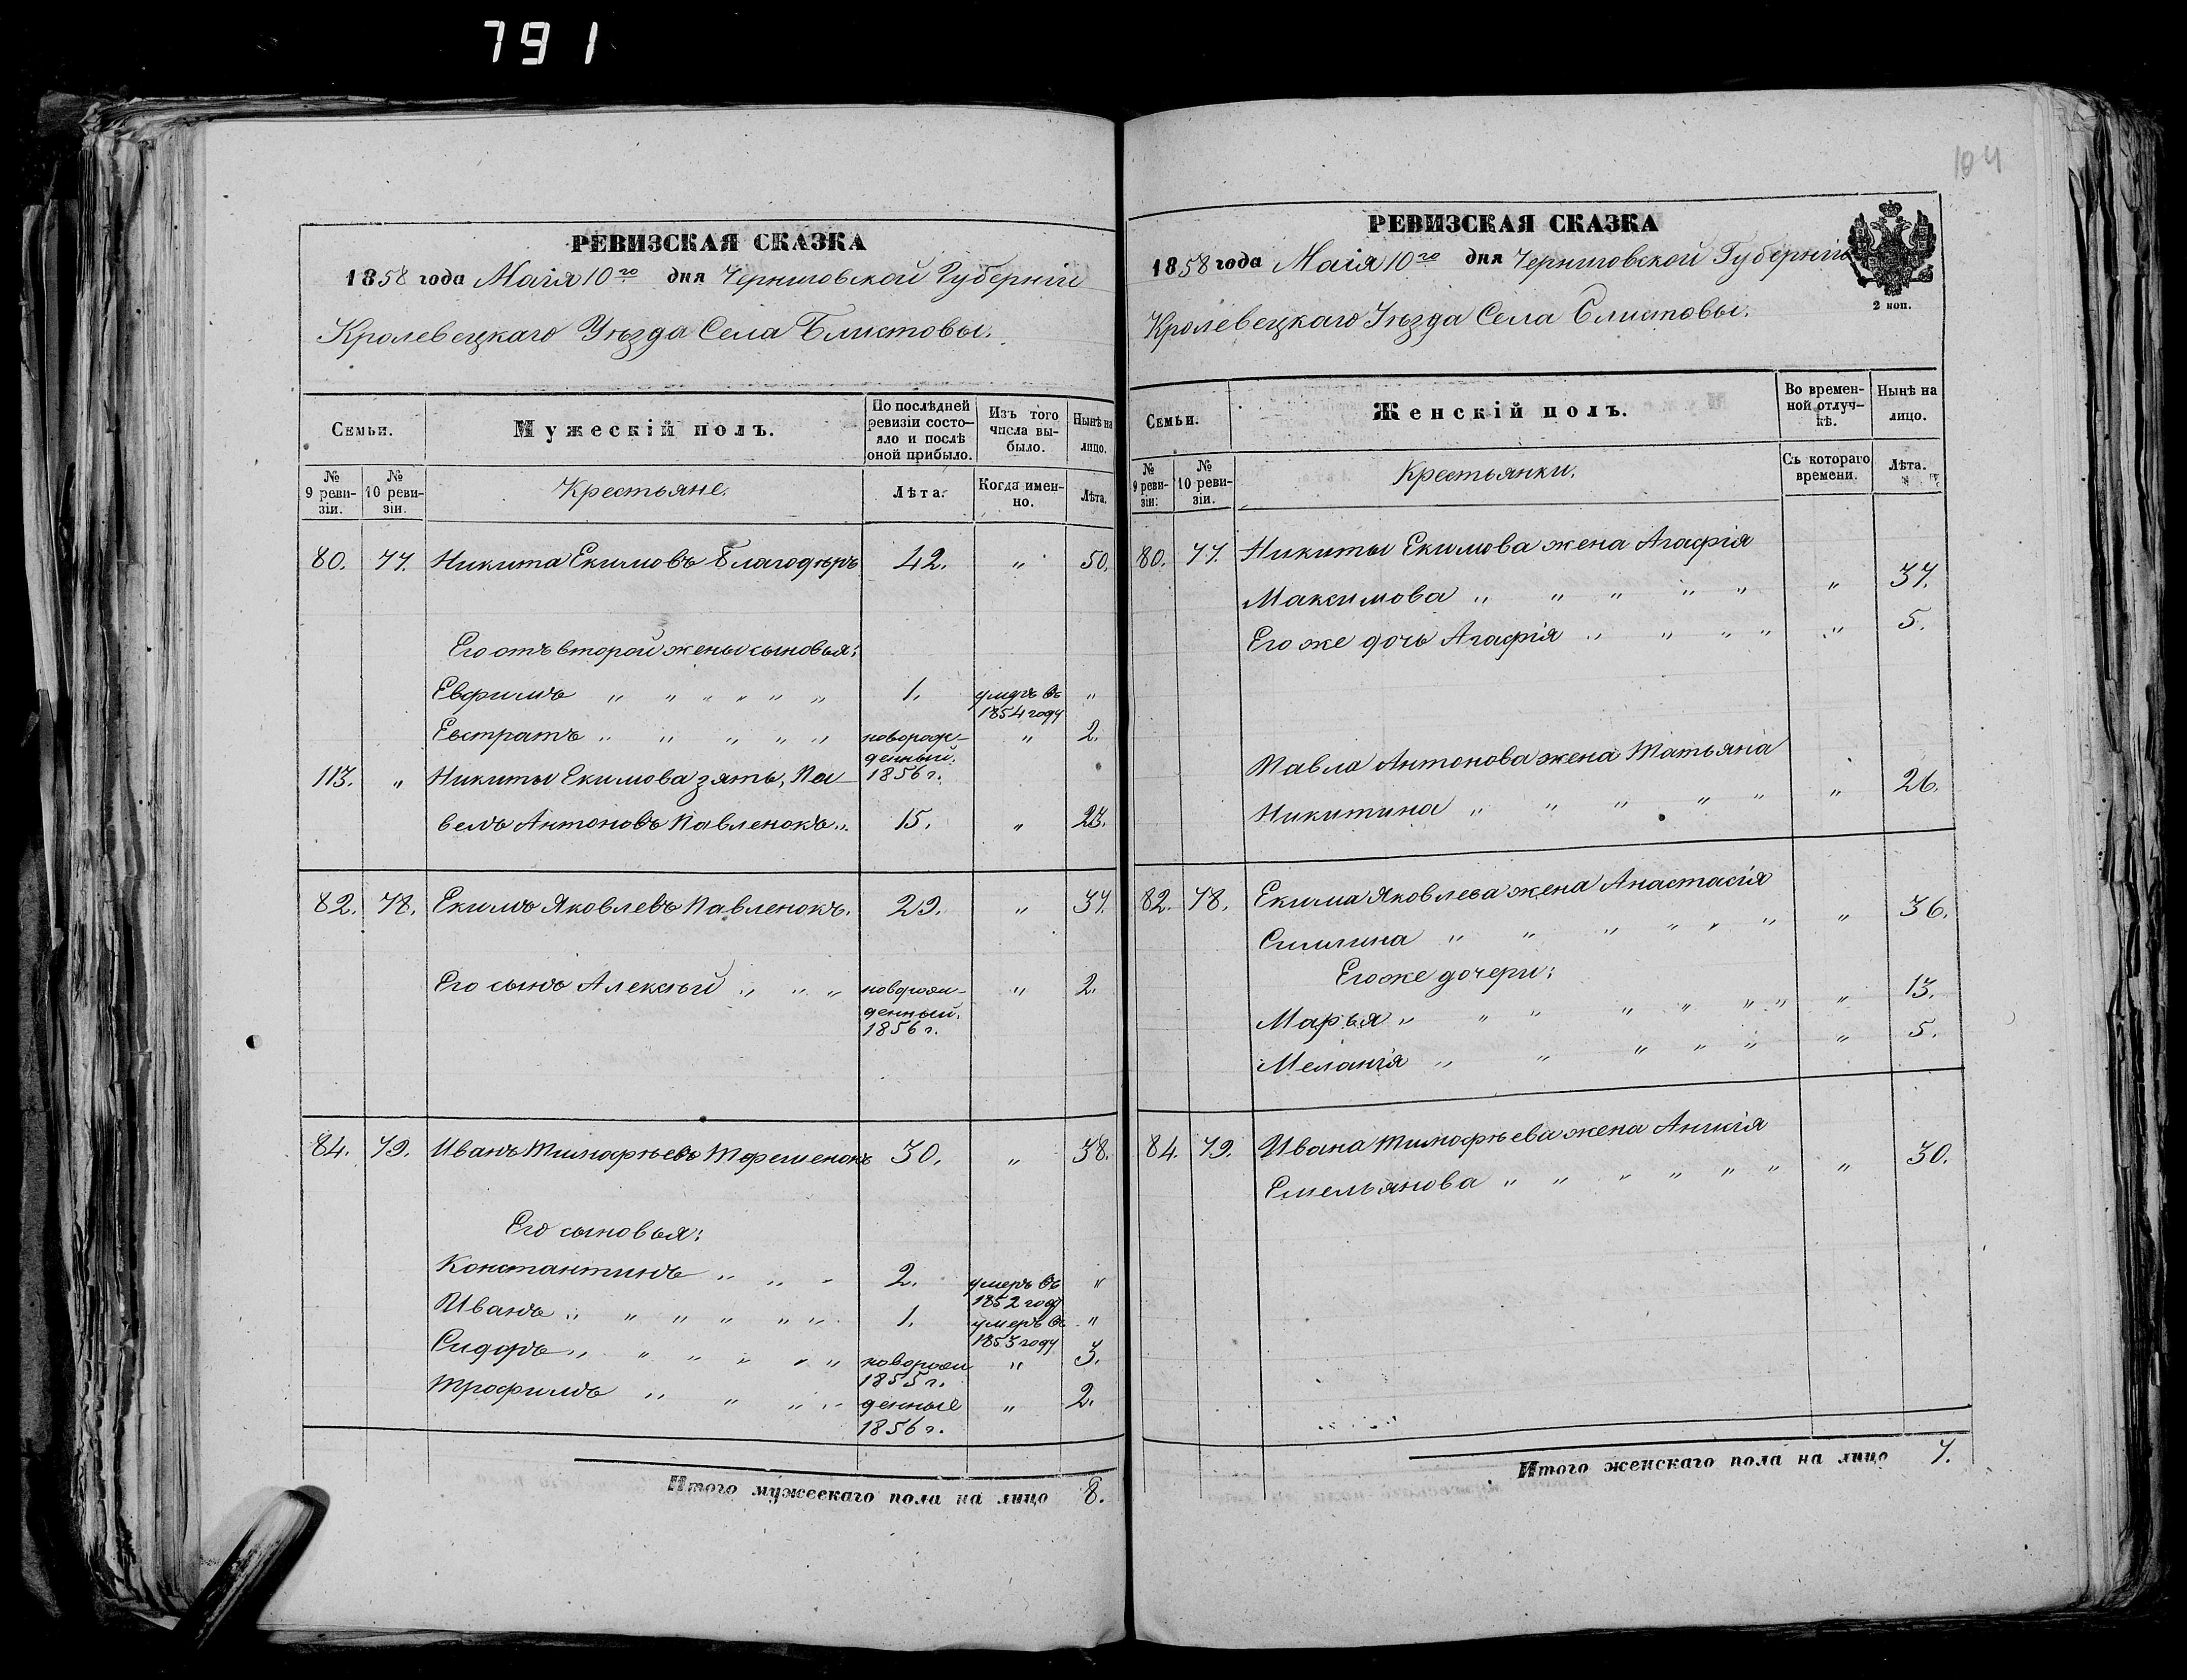 791
РЕВИЗСКАЯ СКАЗКА
1858 года Маія 10го дня Черниговской Губерніи
Кролевецкаго Уѣзда Села Блистовы.
Семьи.
Мужескій полъ.
По послѣдней ревизіи состояло и послѣ оной прибыло.
Изъ того числа выбыло.
Нынѣ на лицо.
№ 9 ревизіи.
№ 10 ревизіи.
Крестьяне.
Лѣта.
Когда именно.
Лѣта.
80. 77. Никита Екимовъ Благодѣръ 42. " 50.
Его отъ второй жены сыновья:
Евфимъ " " " " " " 1. умеръ въ 1854 году "
Евстратъ " " " " " новорожденный 1856 г. " 2.
113. " Никиты Екимова зять, Па-
велъ Антоновъ Павленокъ " 15. " 23.
82. 78. Екимъ Яковлевъ Павленокъ. 29. " 37.
Его сынъ Алексѣй " " " новорожденный. 1856 г. " 2.
84. 79. Иванъ Тимофѣевъ Терешенокъ 30. " 38.
Его сыновья:
Константинъ " " " 2. умеръ въ 1852 году "
Иванъ " " " " " " 1. умеръ въ 1853 году "
Сидоръ " " " " " " новорож 1855 г. " 3.
Трофимъ " " " " денные 1856 г. " 2.
Итого мужескаго пола на лицо 8.
104
РЕВИЗСКАЯ СКАЗКА
1858 года Маія 10го дня Черниговской Губерніи
2 коп.
Кролевецкаго Уѣзда Села Блистовы.
Семьи.
Женскій полъ.
Во временной отлучкѣ.
Нынѣ на лицо.
№ 9 ревизіи.
№ 10 ревизіи.
Крестьянки.
Съ котораго времени.
Лѣта.
80. 77. Никиты Екимова жена Агафія
Максимова " " " " " " 37.
Его же дочь Агафія " " " " " 5.
Павла Антонова жена Татьяна
Никитина " " " " " " 26.
82. 78. Екима Яковлева жена Анастасія
Симлина " " " " " " " 36.
Его же дочери:
Марья " " " " " " " " 13.
Меланія " " " " " " 5.
84. 79. Ивана Тимофѣева жена Анисія
Емельянова " " " " " " " 30.
Итого женскаго пола на лицо 7.